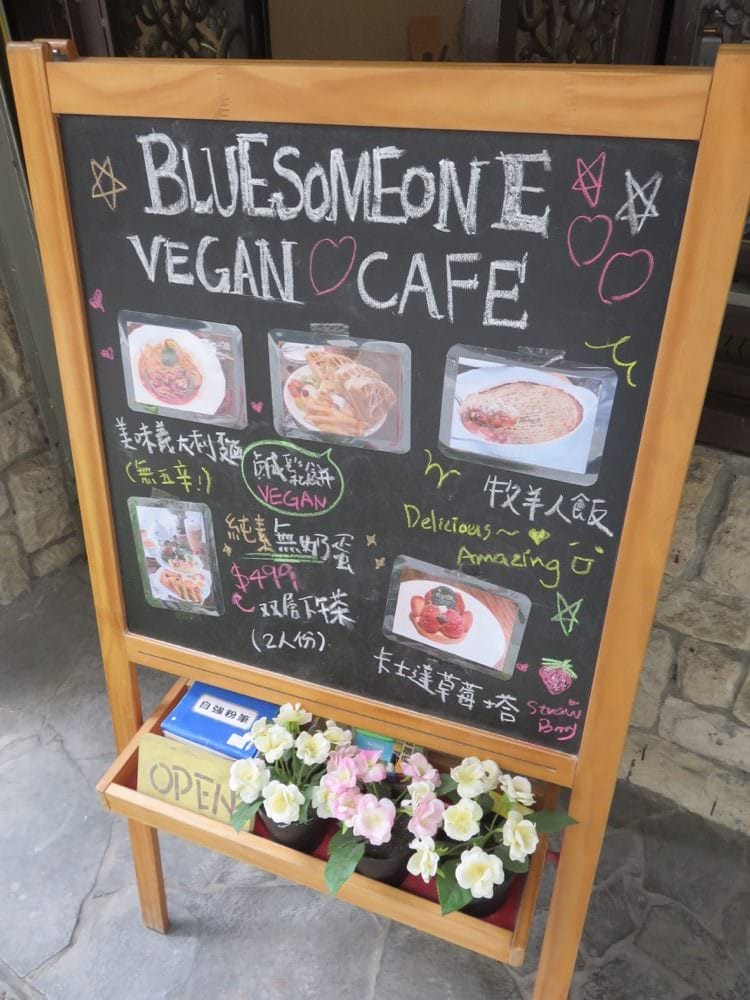 BLUESOMEONE
VEGAN CAFE
美味義大利麵
(無五辛!)
鹹鬆餅
VEGAN
牧羊人飯
Delicious~
Amazing
純素無奶蛋
$499
双層下午茶
(2人份)
卡士達草莓塔
Straw
Berry
自強粉筆
OPEN